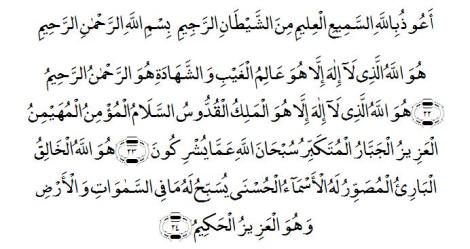 أَعُوذُ بِاللَّهِ السَّمِيعِ الْعِلِيمِ مِنَ الشَّيْطَانِ الرَّجِيمِ بِسْمِ اللَّهِ الرَّحْمٰنِ الرَّحِيمِ
هُوَ اللَّهُ الَّذِي لَآ إِلٰهَ إِلَّا هُوَ عَالِمُ الْغَيْبِ وَالشَّهَادَةِ هُوَ الرَّحْمٰنُ الرَّحِيمُ
﴿٢٢﴾ هُوَ اللَّهُ الَّذِي لَآ إِلٰهَ إِلَّا هُوَ الْمَلِكُ الْقُدُّوسُ السَّلَامُ الْمُؤْمِنُ الْمُهَيْمِنُ
الْعَزِيزُ الْجَبَّارُ الْمُتَكَبِّرُ سُبْحَانَ اللَّهِ عَمَّا يُشْرِكُونَ ﴿٢٣﴾ هُوَ اللَّهُ الْخَالِقُ
الْبَارِئُ الْمُصَوِّرُ لَهُ الْأَسْمَآءُ الْحُسْنَى يُسَبِّحُ لَهُ مَا فِي السَّمٰوَاتِ وَالْأَرْضِ
وَهُوَ الْعَزِيزُ الْحَكِيمُ ﴿٢٤﴾